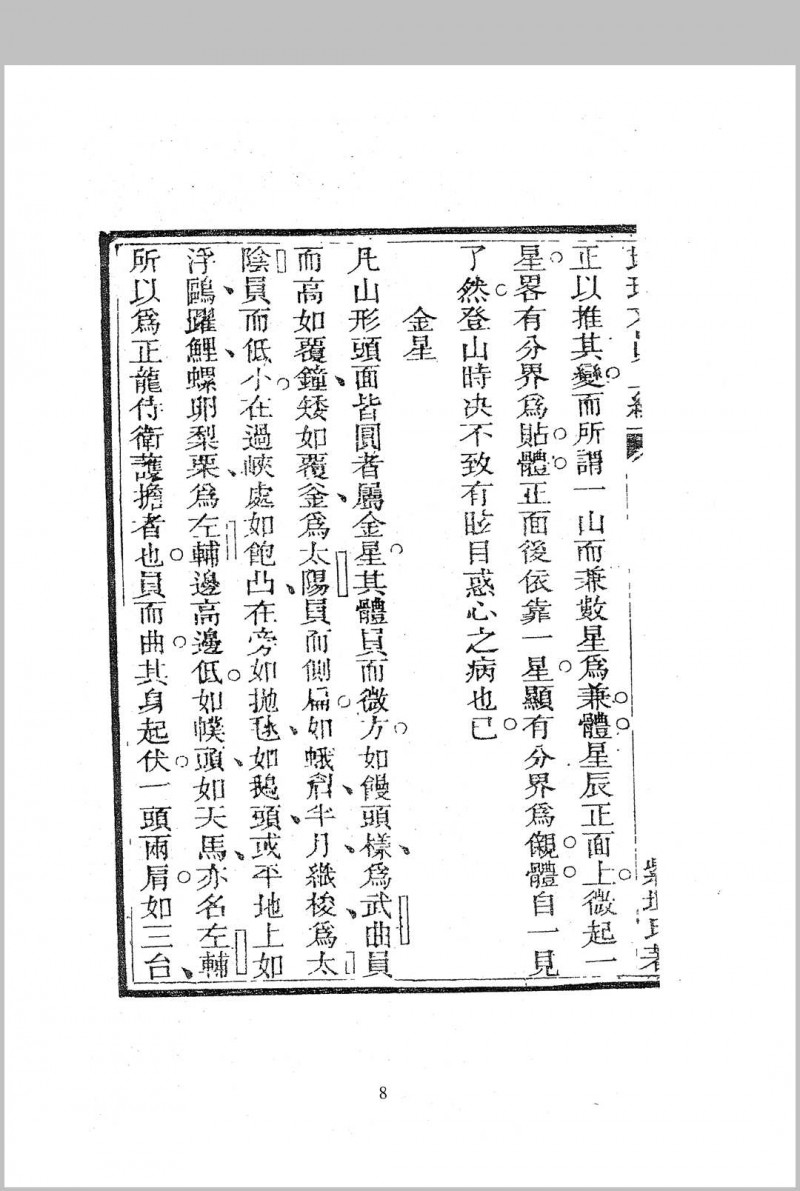 正以推其變而所謂一山而兼數星為兼體星辰正面上微起一
星畧有分界為貼體正面後依靠一星顯有分界為儭體自一見
了然登山時决不致有眩目惑心之病也已
金星
凡山形頭面皆圓者屬金星其體員而微方如饅頭樣為武曲員
而高如覆鐘矮如覆釜為太陽員而側扁如蛾眉半月織梭為太
陰員而低小在過峽處如飽凸在旁如拋毬如鵝頭或平地上如
浮鷗躍鯉螺卵梨栗為左輔邊高邊低如幞頭如天馬亦名左輔
所以為正龍侍衛護擔者也員而曲其身起伏一頭兩肩如三台
8